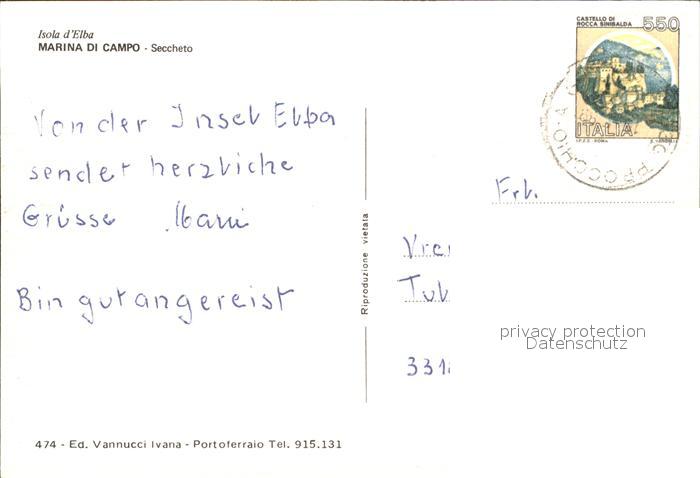 Isola d'Elba
MARINA DI CAMPO - Seccheto
CASTELLO DI
ROCCA SINIBALDA
550
ITALIA
I.P.Z.S. - ROMA
PROCCHIO
Von der Insel Elba
sendet herzliche
Grüsse Mami
Bin gut angereist
Riproduzione vietata
Frl.
privacy protection
Datenschutz
474 - Ed. Vannucci Ivana - Portoferraio Tel. 915.131